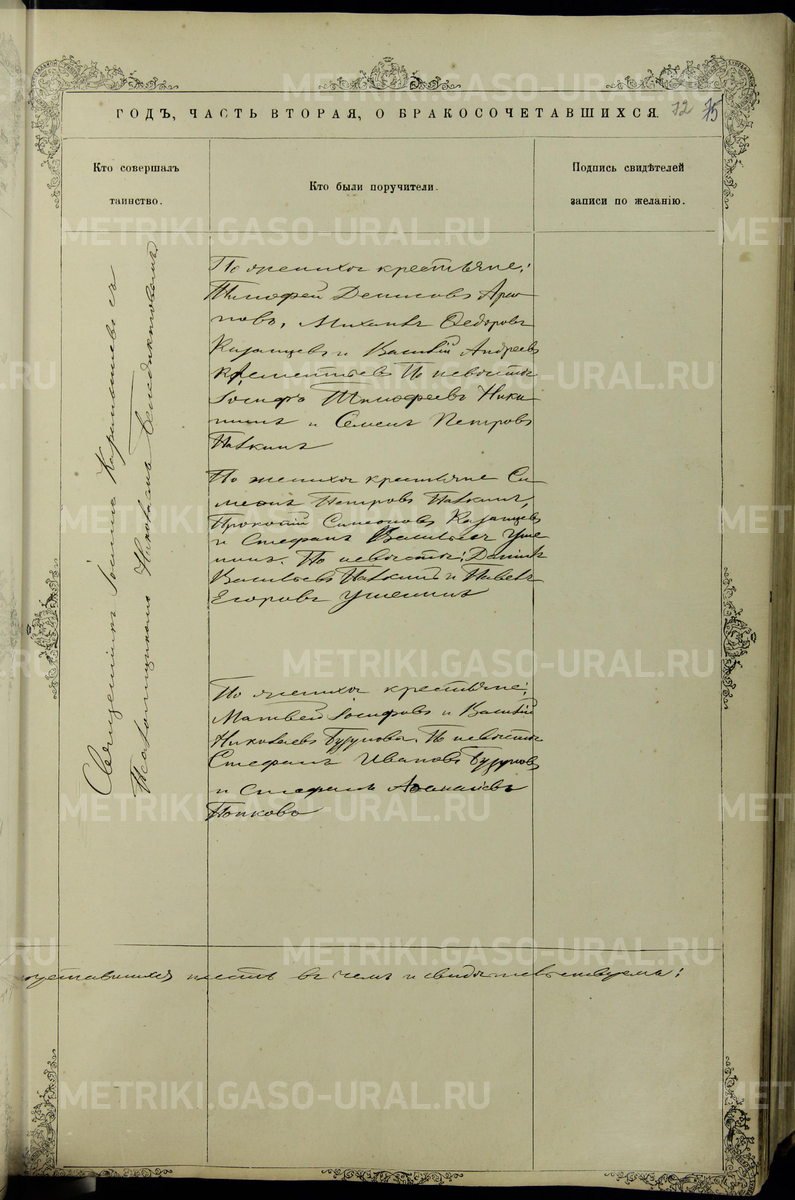 ГОДЪ, ЧАСТЬ ВТОРАЯ, О БРАКОСОЧЕТАВШИХСЯ.
72 75
Кто совершалъ
таинство.
Кто были поручители.
Подпись свидѣтелей
записи по желанію.
Священникъ Іоаннъ съ
Николаемъ
По женихѣ крестьяне:
Тимофей Денисовъ
Михаилъ Ѳедоровъ
Казанцевъ и Василій Андреевъ
По невѣстѣ
Іосифъ Тимофеевъ Ники
и Семенъ Петровъ
Павкинъ
По женихѣ крестьяне Си
меонъ Петровъ Павкинъ,
Прокопій Симеоновъ Казанцевъ
и Стефанъ Васильевъ Уше
нинъ. По невѣстѣ: Даніилъ
Васильевъ Павкинъ и Павелъ
Егоровъ Ушенинъ
По женихѣ крестьяне:
Матвей Іосифовъ и Василій
Николаевъ Бузуновы. По невѣстѣ
Стефанъ Ивановъ Бузуновъ
и Стефанъ Аѳанасіевъ
Попковъ
шесть въ чемъ и свидѣтельствуемъ:
METRIKI.GASO-URAL.RU